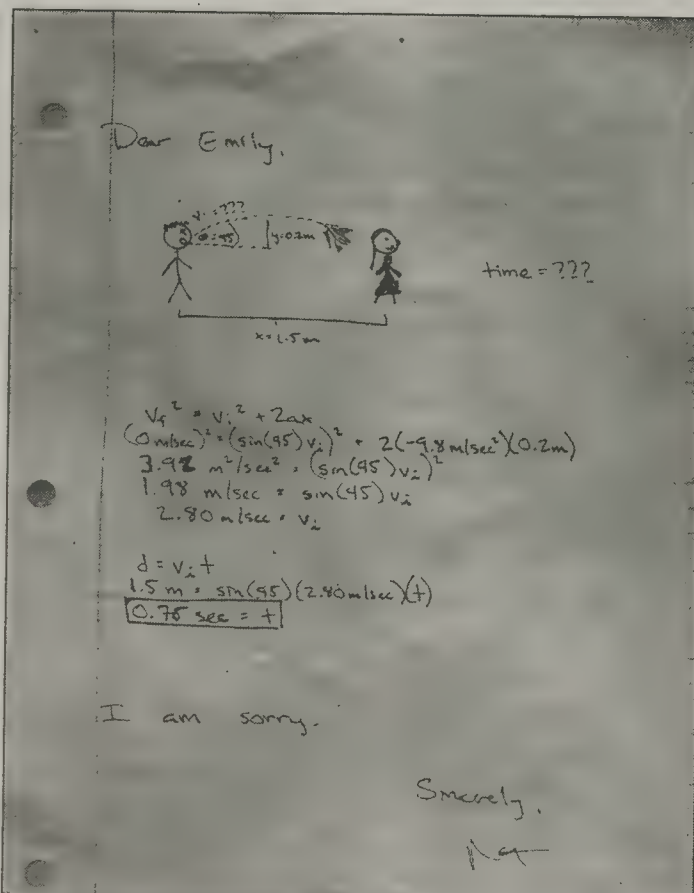 Dear Emily,
vᵢ = ???
θ=45
y=0.2m
time = ???
x=1.5m
v_f² = vᵢ² + 2ax
(0 m/sec)² = (sin(45)vᵢ)² + 2(-9.8 m/sec²)(0.2m)
3.92 m²/sec² = (sin(45)vᵢ)²
1.98 m/sec = sin(45)vᵢ
2.80 m/sec = vᵢ
d = vᵢt
1.5 m = sin(45)(2.80 m/sec)(t)
0.75 sec = t
I am sorry.
Sincerely,